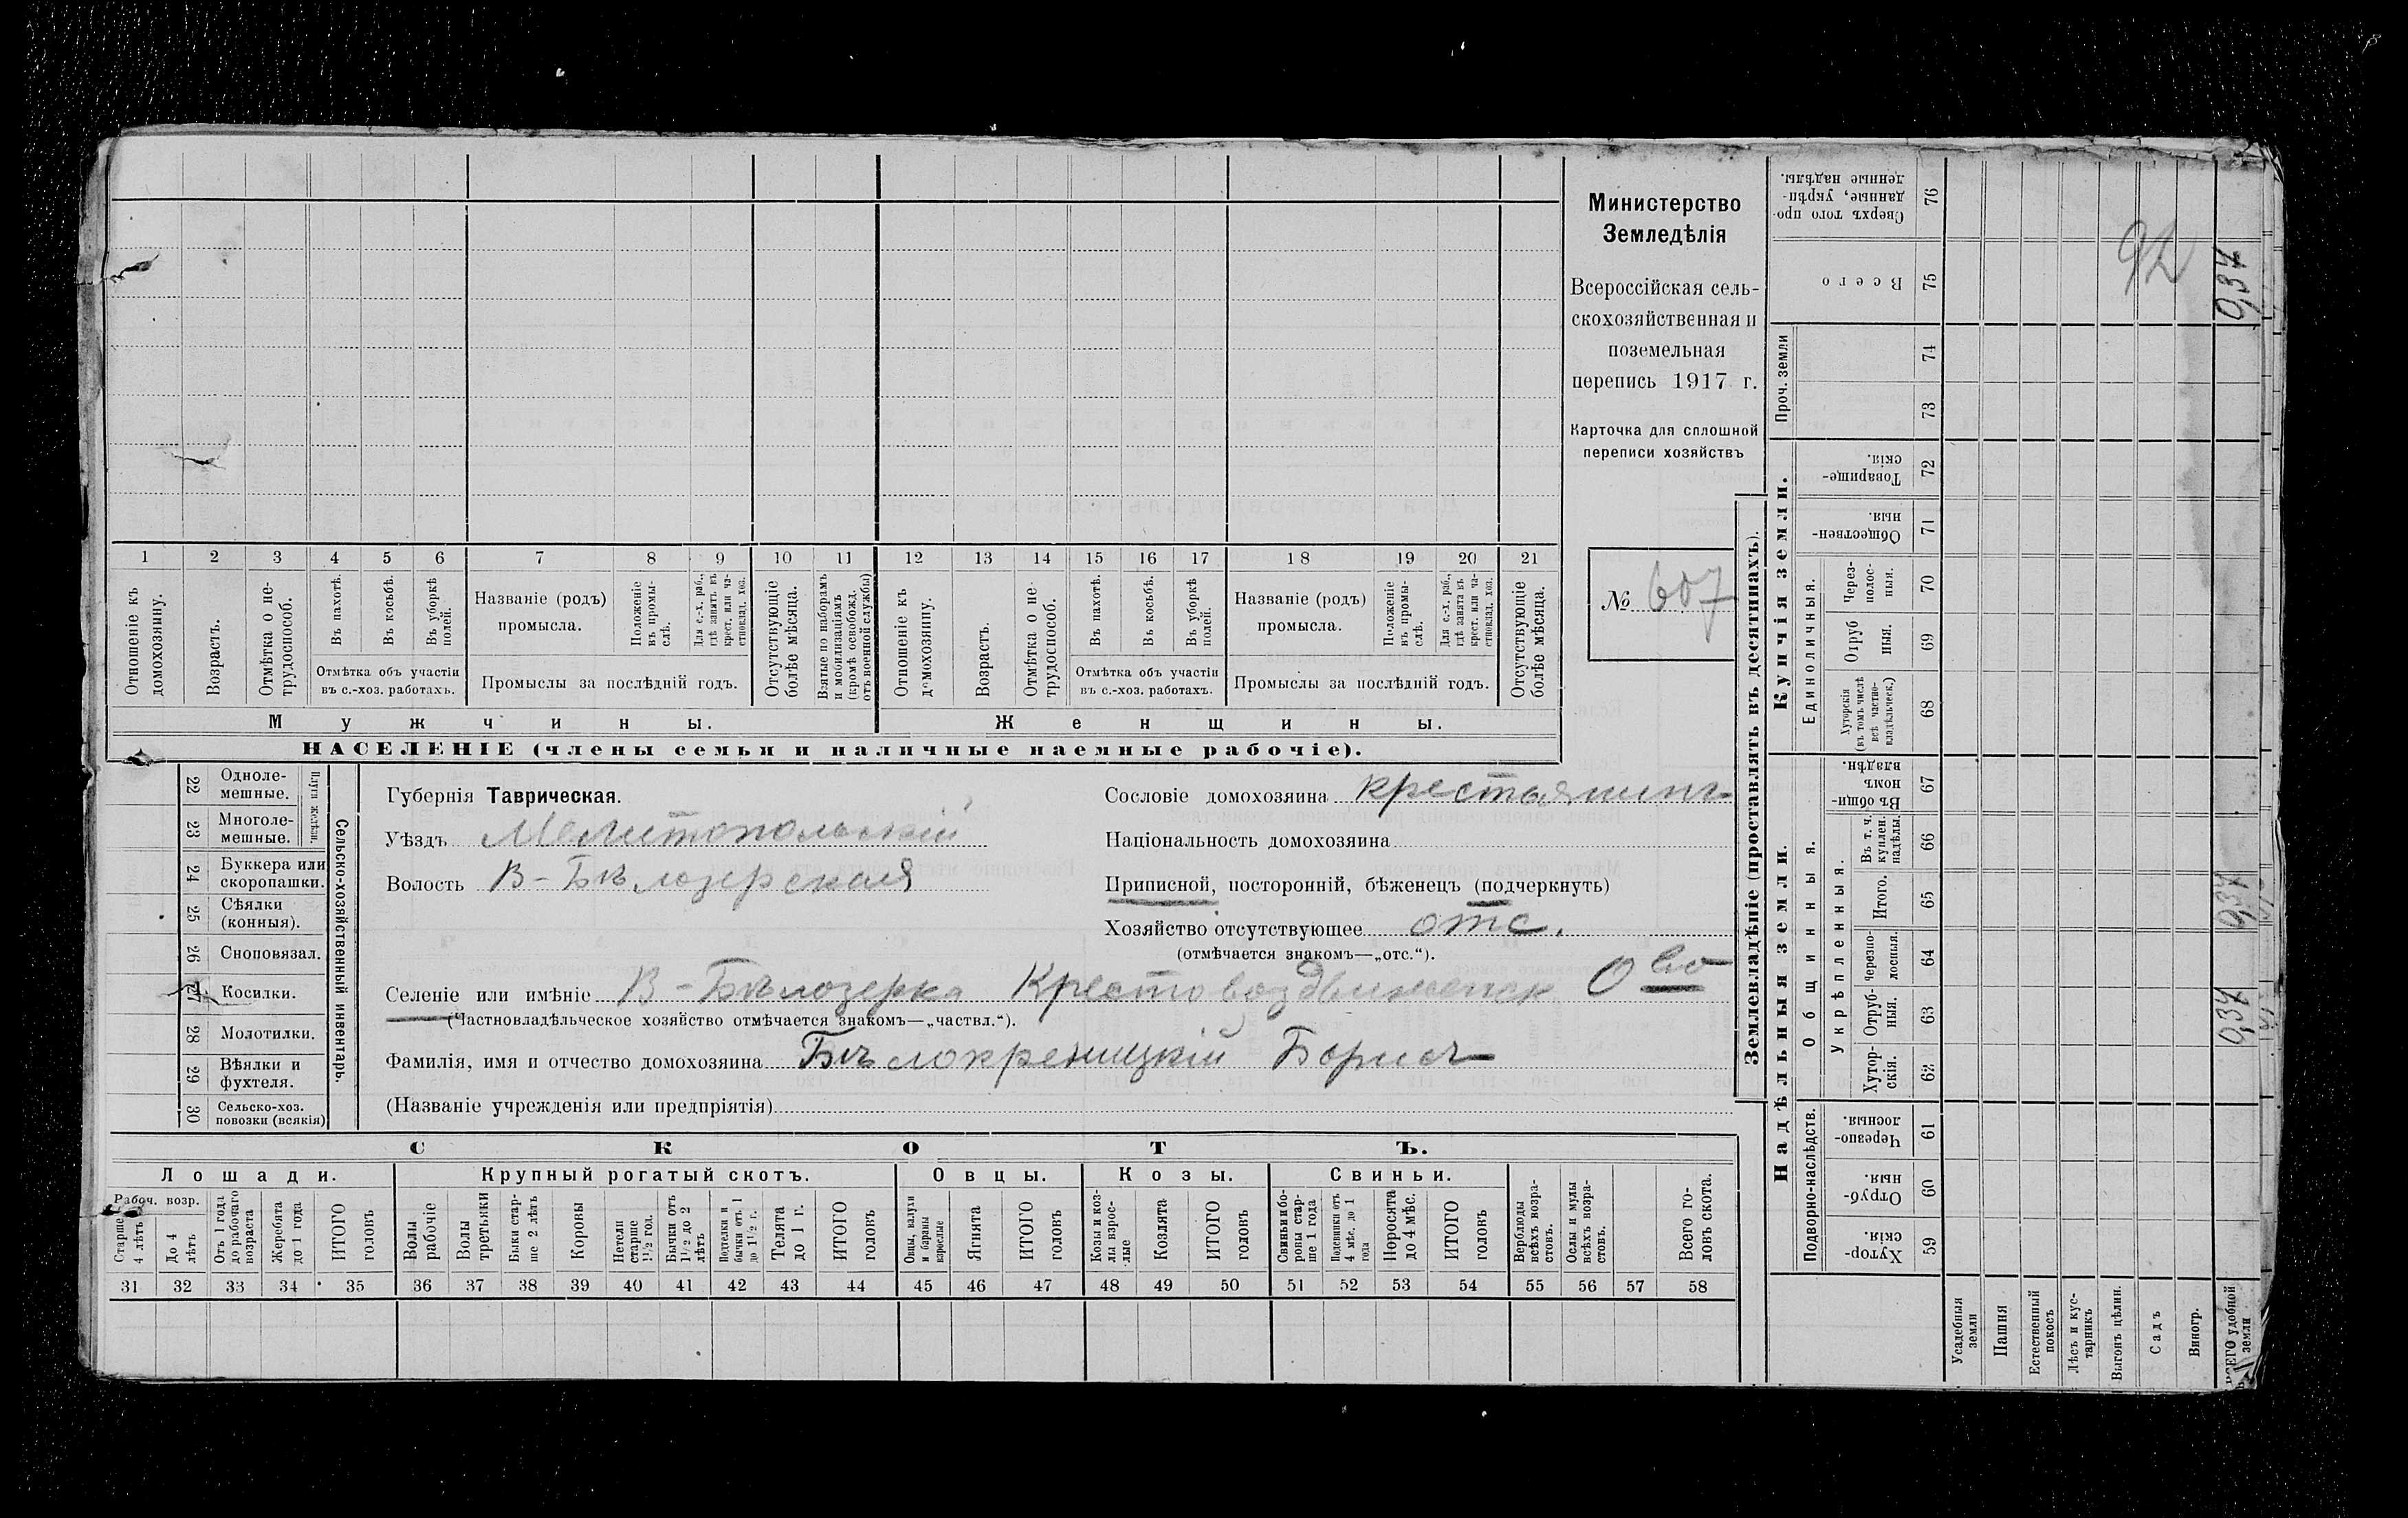 Министерство
Земледѣлія
Всероссійская сель-
скохозяйственная и
поземельная
перепись 1917 г.
Карточка для сплошной
переписи хозяйствъ
№ 607
1 2 3 4 5 6 7 8 9 10 11 12 13 14 15 16 17 18 19 20 21
Отношеніе къ домохозяину.
Возрастъ.
Отмѣтка о не-трудоспособ.
Въ пахотѣ.
Въ косьбѣ.
Въ уборкѣ полей.
Отмѣтка объ участіи
въ с.-хоз. работахъ.
Названіе (родъ)
промысла.
Положеніе въ промы-слѣ.
Для с.-х. раб., гдѣ занятъ въ крест. или ча-стновлад. хоз.
Промыслы за послѣдній годъ.
Отсутствующіе болѣе мѣсяца.
Взятые по наборамъ и мобилизаціямъ (кромѣ освобожд. отъ военной службы)
Отношеніе къ домохозяину.
Возрастъ.
Отмѣтка о не-трудоспособ.
Въ пахотѣ.
Въ косьбѣ.
Въ уборкѣ полей.
Отмѣтка объ участіи
въ с.-хоз. работахъ.
Названіе (родъ)
промысла.
Положеніе въ промы-слѣ.
Для с.-х. раб., гдѣ занята въ крест. или ча-стновлад. хоз.
Промыслы за послѣдній годъ.
Отсутствующіе болѣе мѣсяца.
Мужчины.
Женщины.
НАСЕЛЕНІЕ (члены семьи и наличные наемные рабочіе).
Сельско-хозяйственный инвентарь.
22 Одноле-мешные.
23 Многоле-мешные.
24 Буккера или скоропашки.
25 Сѣялки (конныя).
26 Сноповязал.
27 Косилки.
28 Молотилки.
29 Вѣялки и фухтеля.
30 Сельско-хоз. повозки (всякія)
Губернія Таврическая.
Уѣздъ Мелитопольскій
Волость В-Бѣлозерская
Сословіе домохозяина крестьянинъ
Національность домохозяина
Приписной, посторонній, бѣженецъ (подчеркнуть)
Хозяйство отсутствующее отс.
(отмѣчается знакомъ—„отс.“).
Селеніе или имѣніе В-Бѣлозерка Крестовоздвиженск О во
(Частновладѣльческое хозяйство отмѣчается знакомъ—„частвл.“).
Фамилія, имя и отчество домохозяина Бѣлокреницкій Борисъ
(Названіе учрежденія или предпріятія)
СКОТЪ.
Лошади.
Крупный рогатый скотъ.
Овцы.
Козы.
Свиньи.
Рабоч. возр.
Старше 4 лѣтъ
До 4 лѣтъ
Отъ 1 года до рабочаго возраста
Жеребята до 1 года
ИТОГО головъ
Волы рабочіе
Волы третьяки
Быки стар-ше 2 лѣтъ
Коровы
Нетели старше 1½ год.
Бычки отъ 1½ до 2 лѣтъ
Подтелки и бычки отъ 1 до 1½ г.
Телята до 1 г.
ИТОГО головъ
Овцы, валухи и бараны взрослые
Ягнята
ИТОГО головъ
Козы и коз-лы взрос-лые
Козлята
ИТОГО головъ
Свиньи и бо-ровы стар-ше 1 года
Подсвинки отъ 4 мѣс. до 1 года
Поросята до 4 мѣс.
ИТОГО головъ
Верблюды всѣхъ возра-стовъ.
Ослы и мулы всѣхъ возра-стовъ.
Всего го-ловъ скота.
31 32 33 34 35 36 37 38 39 40 41 42 43 44 45 46 47 48 49 50 51 52 53 54 55 56 57 58
Землевладѣніе (проставлять въ десятинахъ).
Надѣльныя земли.
Купчія земли.
Проч. земли
Сверхъ того про-данные, укрѣп-ленные надѣлы. 76
Всего 75
74
73
Товарище-скія. 72
Обществен-ныя. 71
Единоличныя.
Через-полос-ныя. 70
Отруб ныя. 69
Хуторскія (въ томъ числѣ всѣ частно-владѣльческ.) 68
Общинныя.
Въ общин-номъ владѣн. 67
Укрѣпленныя.
Въ т. ч. куплен. надѣлы. 66
Итого. 65
Черезпо-лосныя. 64
Отруб-ныя. 63
Хутор-скія. 62
Подворно-наслѣдств.
Черезпо-лосныя 61
Отруб-ныя 60
Хутор-скія. 59
Усадебныя земли
Пашня
Естественный покосъ
Лѣсъ и кус-тарникъ
Выгонъ цѣлин.
Садъ
Виногр.
ВСЕГО удобной земли
0,37
0,37
0,37